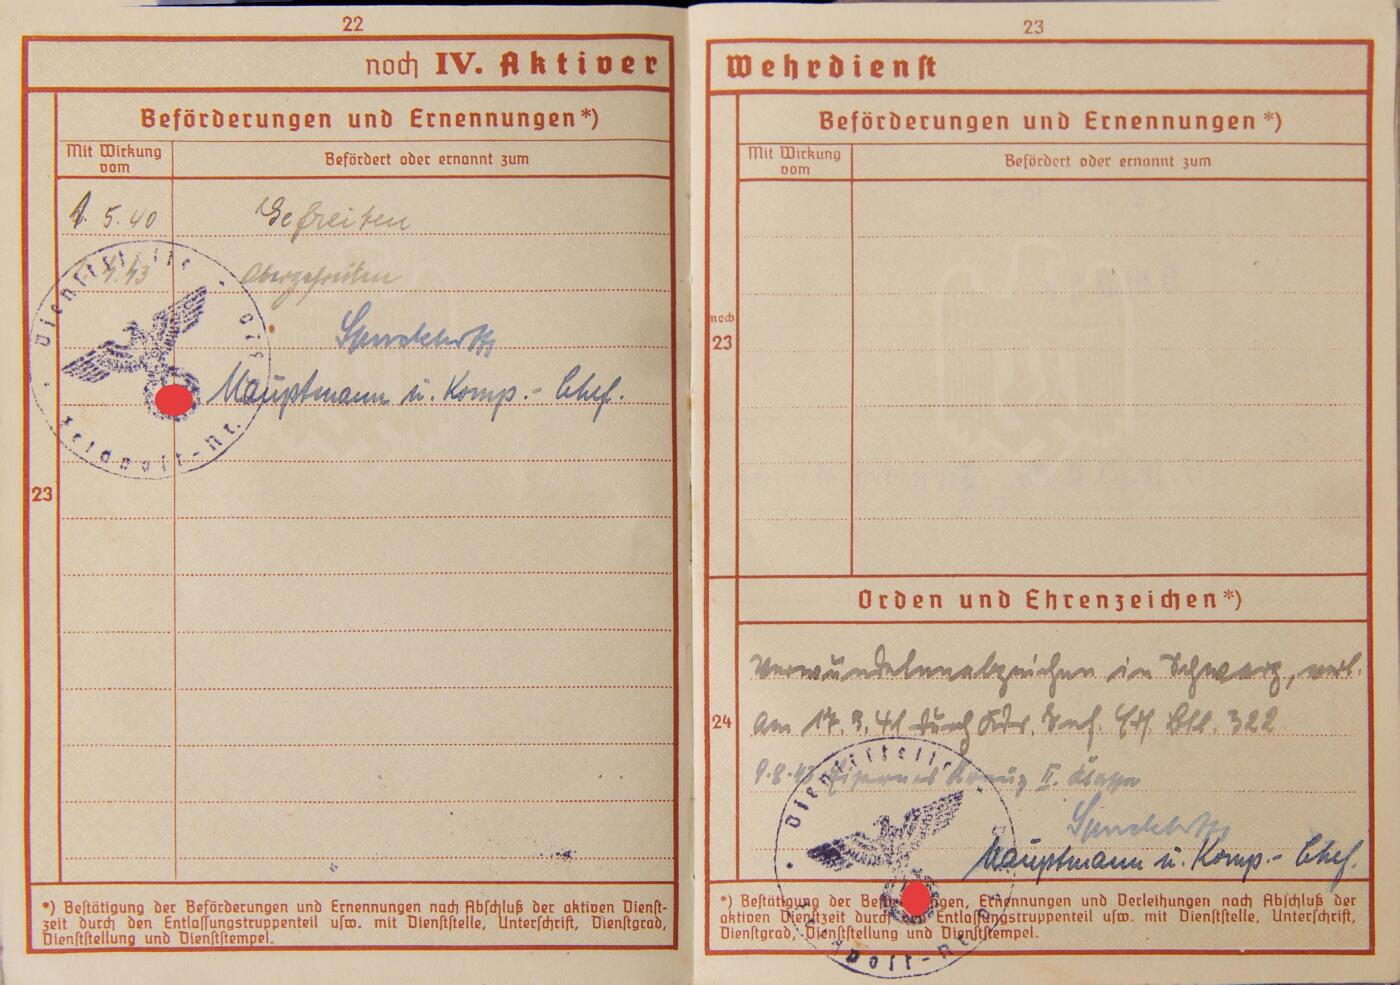 22
noch IV. Aktiver
Beförderungen und Ernennungen*)
Mit Wirkung
vom
Befördert oder ernannt zum
1. 5.40 Gefreiten
4.43 Obergefreiten
Hauptmann u. Komp.- Chef.
Dienststelle
Feldpost-Nr.
23
*) Bestätigung der Beförderungen und Ernennungen nach Abschluß der aktiven Dienst-
zeit durch den Entlassungstruppenteil usw. mit Dienststelle, Unterschrift, Dienstgrad,
Dienststellung und Dienststempel.
23
Wehrdienst
Beförderungen und Ernennungen*)
Mit Wirkung
vom
Befördert oder ernannt zum
noch
23
Orden und Ehrenzeichen*)
Verwundetenabzeichen in Schwarz, verl.
am 17.3.41 durch Kdr. Inf. Ers. Btl. 322
24
9.8.43 Eisernes Kreuz II. Klasse
Hauptmann u. Komp.- Chef.
Dienststelle
*) Bestätigung der Ernennungen und Verleihungen nach Abschluß der
aktiven Dienstzeit durch Entlassungstruppenteil usw. mit Dienststelle, Unterschrift,
Dienstgrad, Dienststellung und Dienststempel.